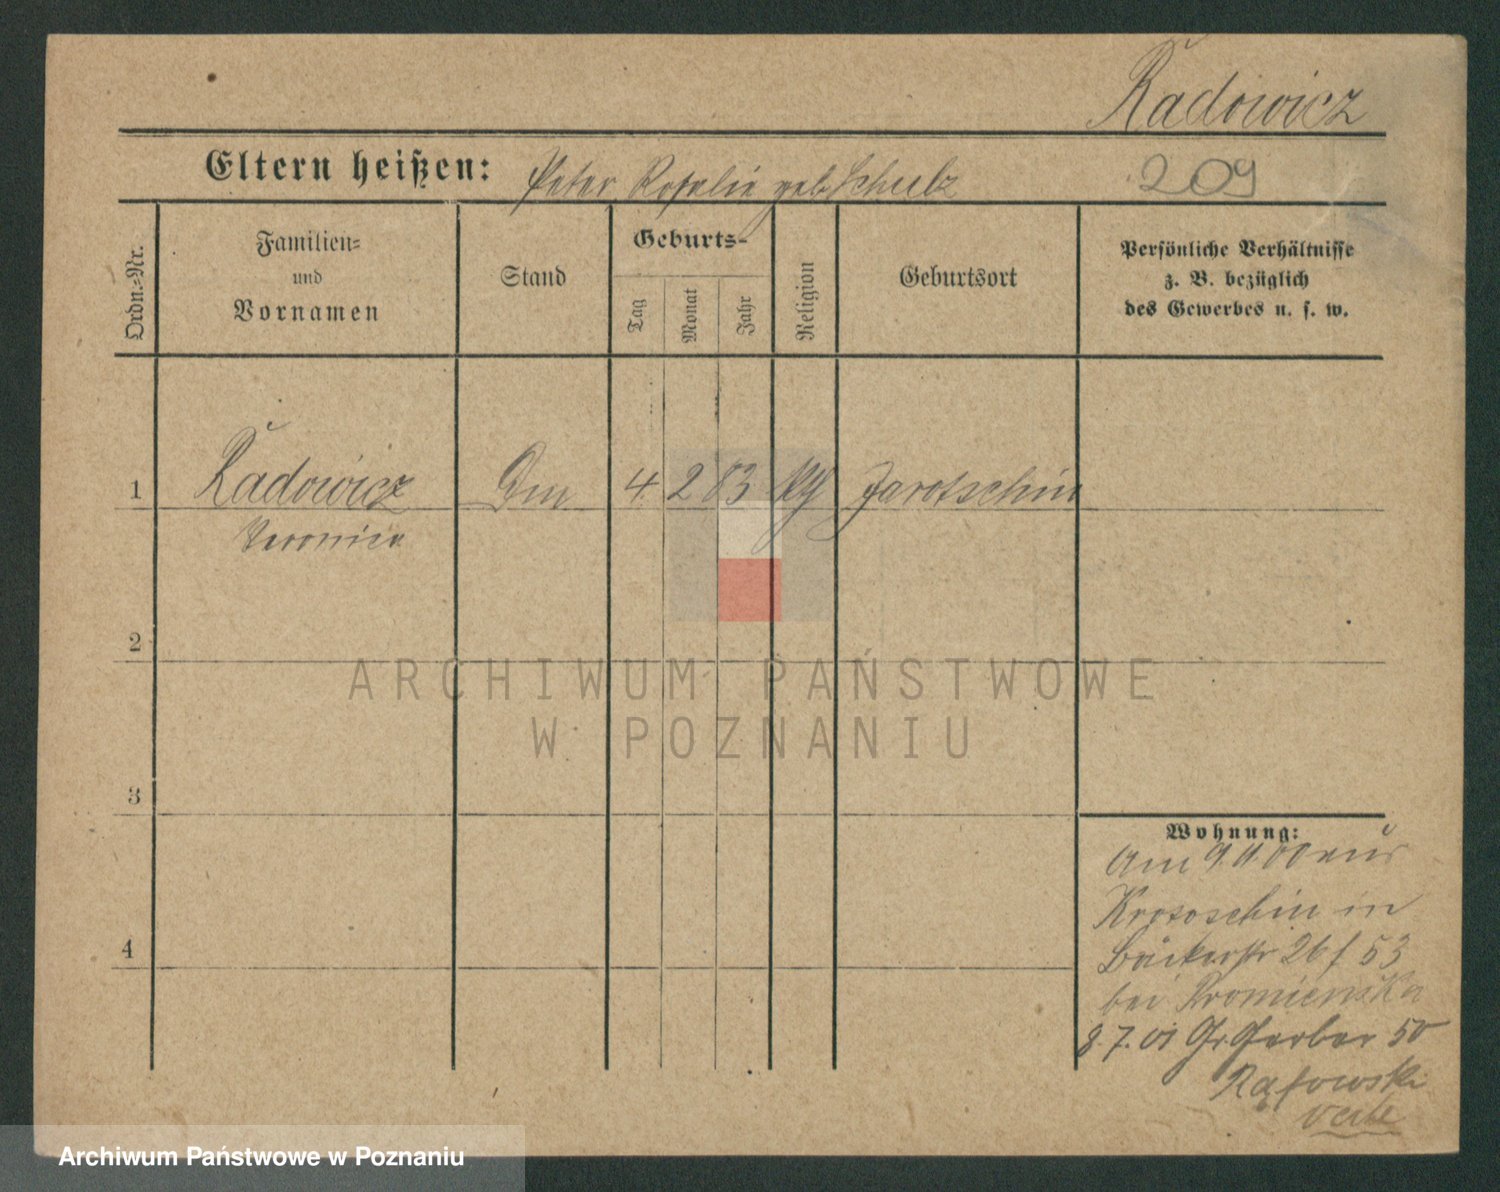 Radowicz
Eltern heißen: Peter Rosalie geb Schulz 209
Ordn.-Nr.
Familien-
und
Vornamen
Stand
Geburts-
Tag
Monat
Jahr
Religion
Geburtsort
Persönliche Verhältnisse
z. B. bezüglich
des Gewerbes u. s. w.
1 Radowicz 4 2 83 Jarotschin
Veronica
2
3
4
Wohnung:
Am 9. 11 00 aus
Krotoschin in
Bäckerstr 26 f 53
bei Promienska
8. 7. 01 Gr. Gerber 50
verte
ARCHIWUM PAŃSTWOWE
W POZNANIU
Archiwum Państwowe w Poznaniu